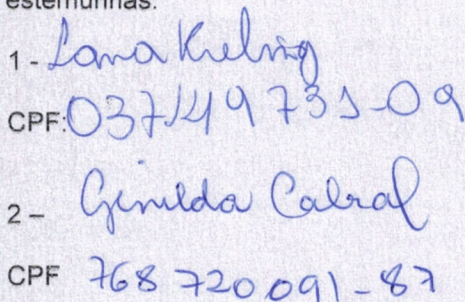 estemunhas:
1 - Lana Kreling
CPF: 037149731-09
2 – Genilda Cabral
CPF 768 720 091 - 87